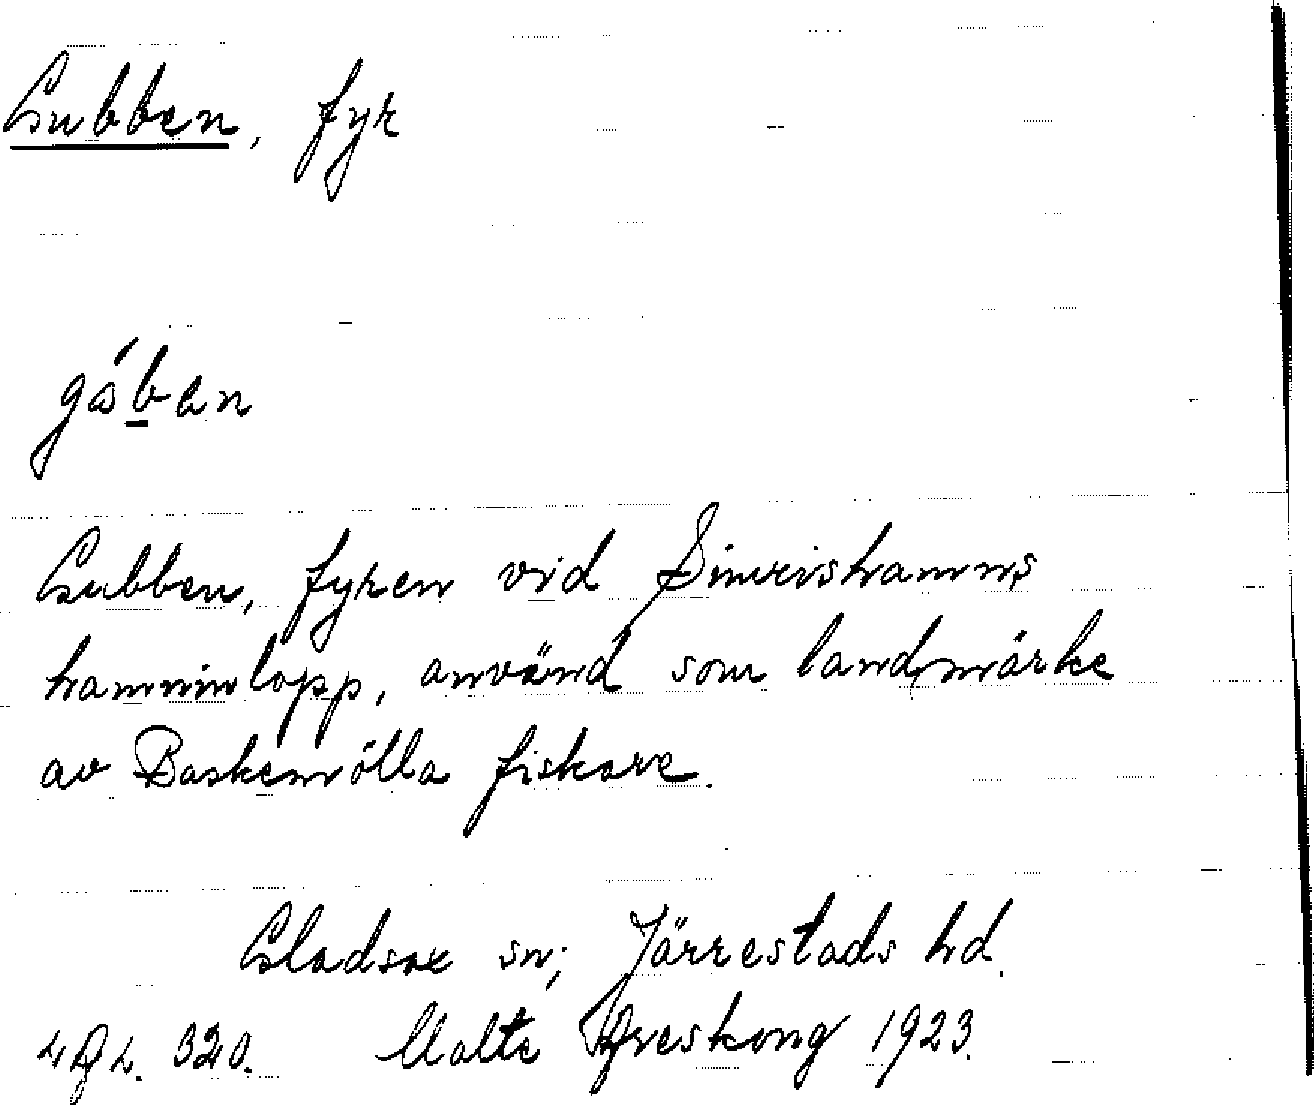 Gubben, fyr
góban
Gubben, fyren vid Simrishamns
hamninlopp, använd som landmärke
av Baskemölla fiskare.
Gladsax sn; Järrestads hd.
320. Malte 1923.